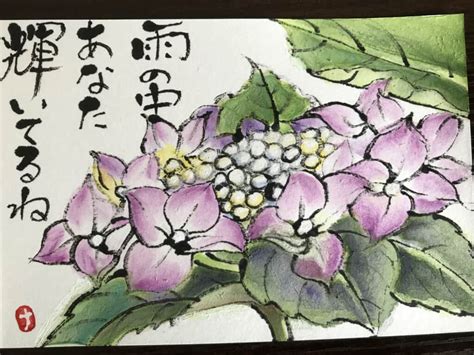 雨の中
あなた
輝いてるね